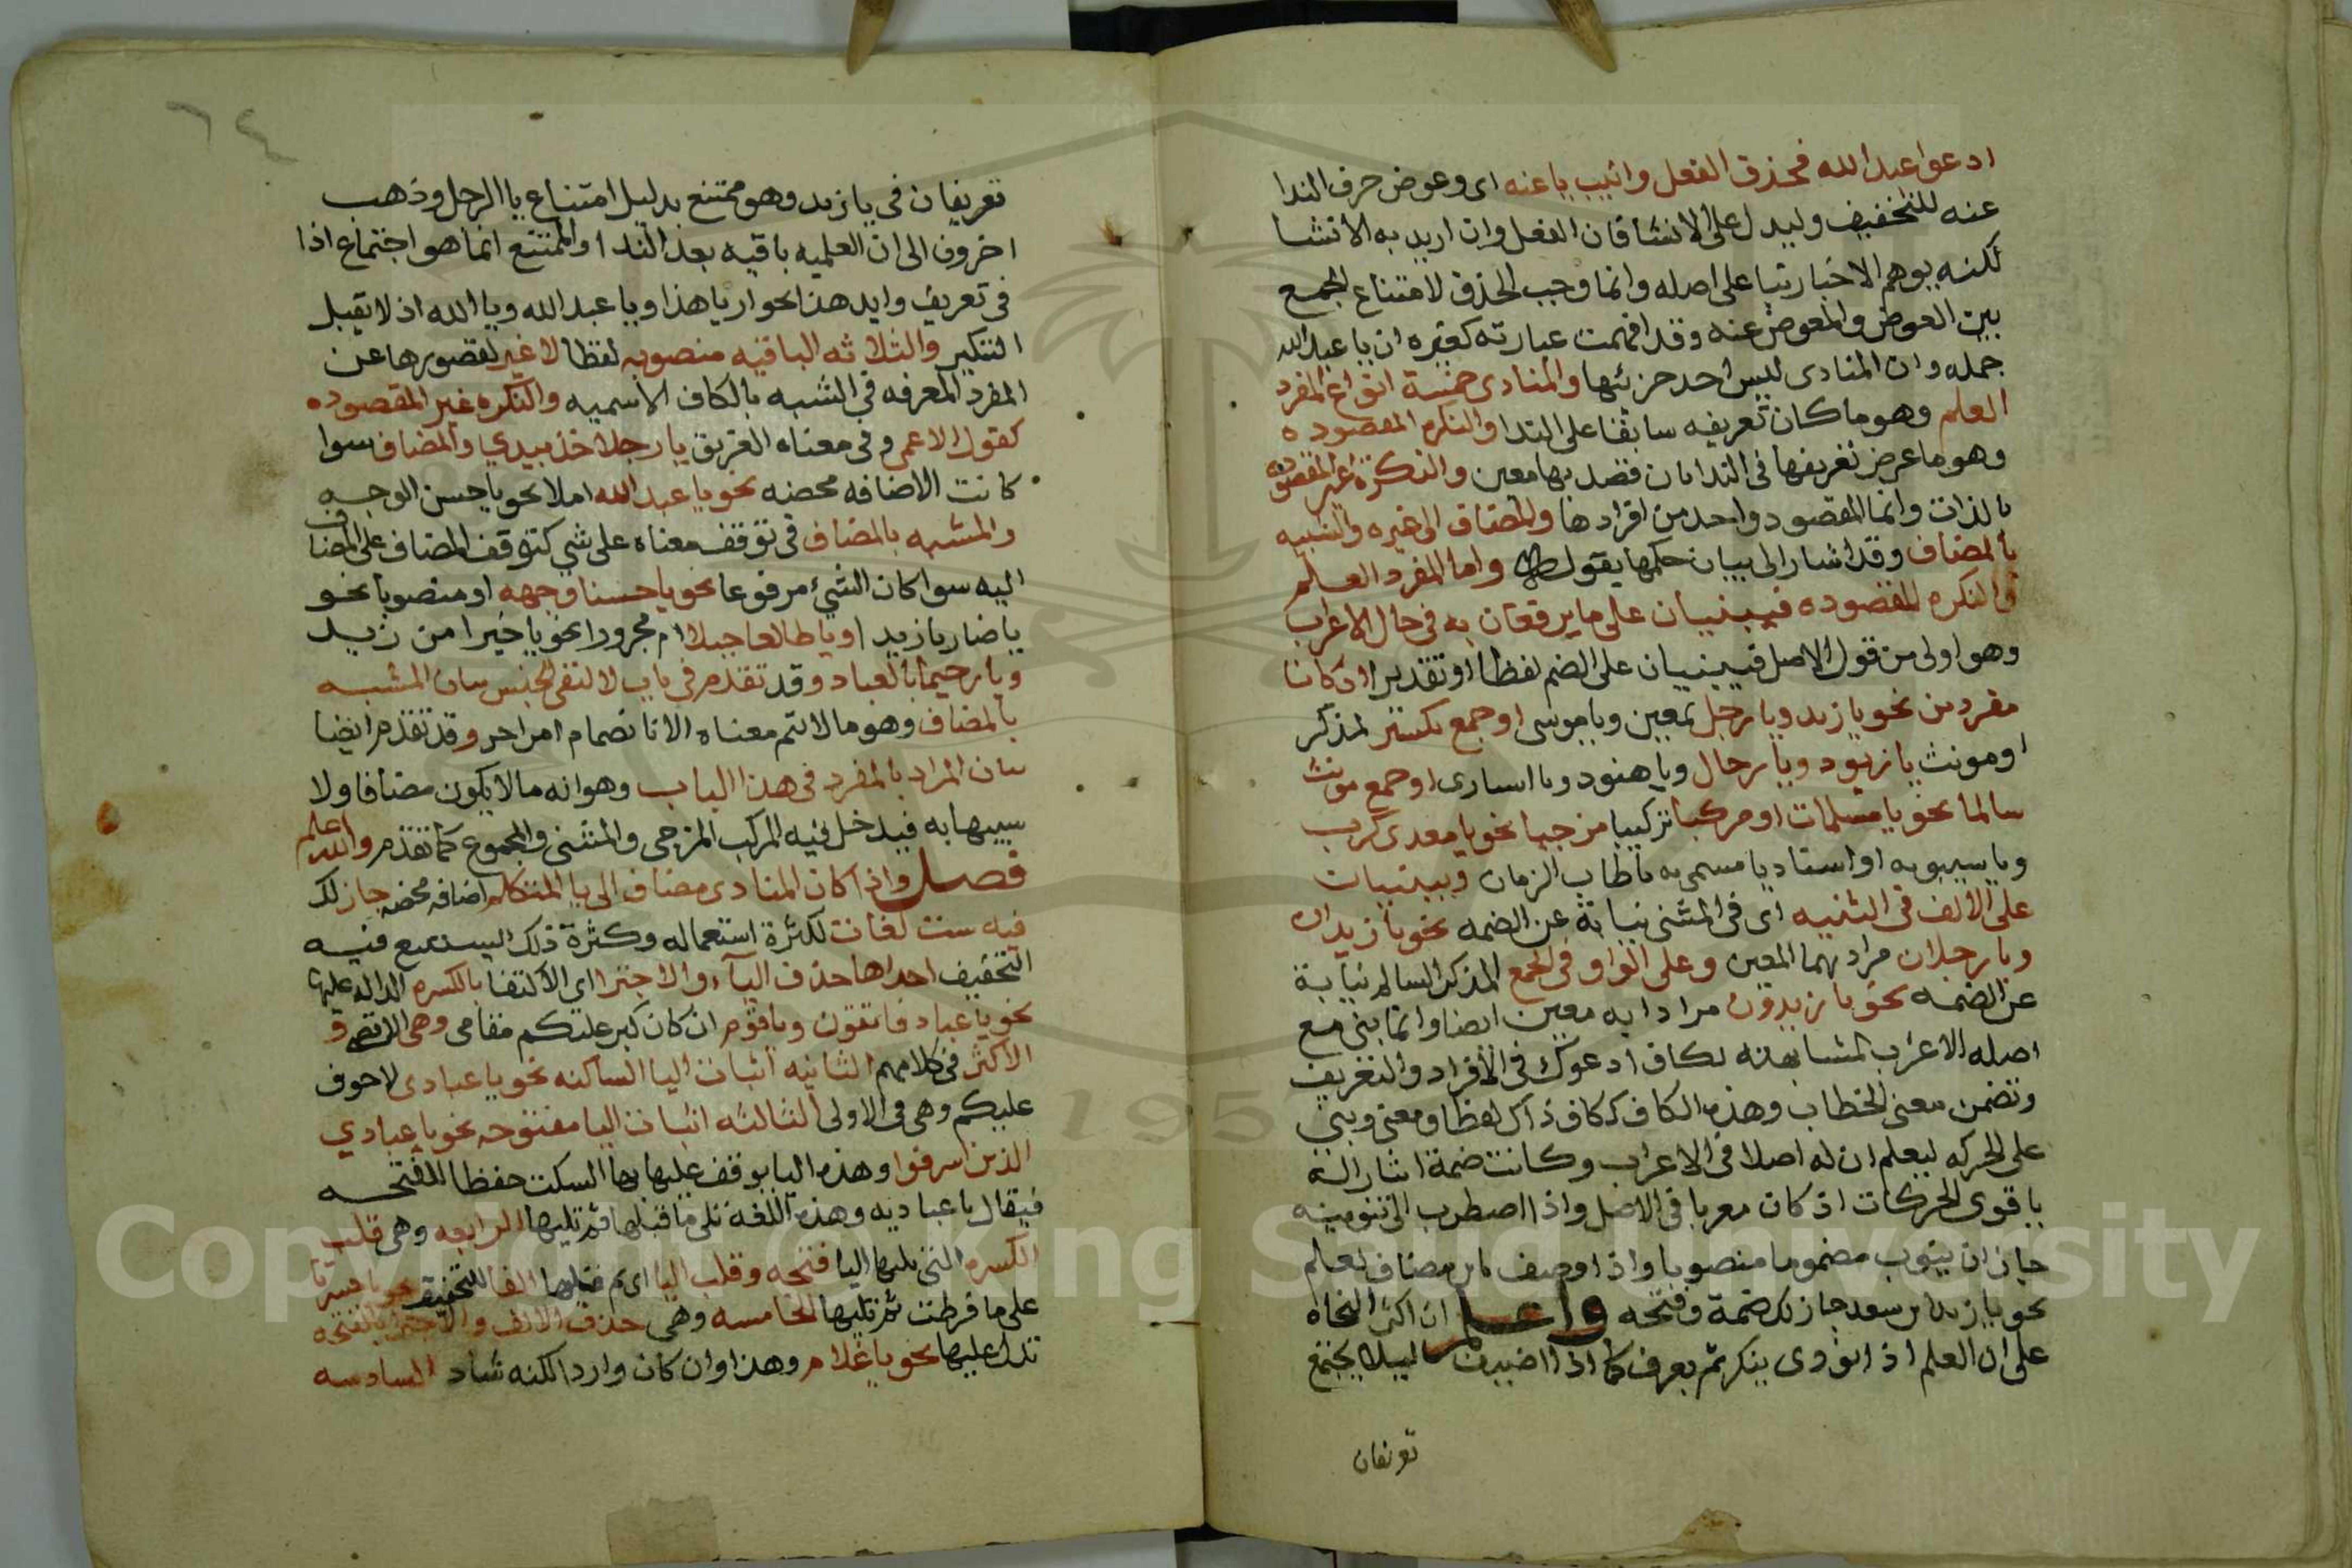 ادعوا عبدالله فحذف الفعل وانيب يا عنه اى وعوض حرف الندا
عنه للتخفيف وليدل على الانشا فان الفعل وان اريد به الانشا
لكنه يوهم الاخبار تبيا على اصله وانما وجب الحذف لامتناع الجمع
بين العوض والمعوض عنه وقد افهمت عبارته كغيره ان يا عبد الله
جمله وان المنادى ليس احد جزئيها والمنادى خمسة انواع المفرد
العلم وهو ما كان تعريفه سابقا على الندا والنكره المقصوده
وهو ما عرض تعريفها فى الندا بان قصد بها معين والنكرة غير المقصوده
بالذات وانما المقصود واحد من افرادها والمضاف الى غيره والشبيه
بالمضاف وقد اشار الى بيان حكمها بقوله واما المفرد العلم
والنكره المقصوده فيبنيان على ما يرفعان به فى حال الاعراب
وهو اولى من قول الاصل فيبنيان على الضم لفظا او تقديرا ان كانا
مفردين نحو يا زيد ويا رجل لمعين ويا موسى او جمع تكسير لمذكر
او مونث يا زيود ويا رجال ويا هنود ويا اسارى او جمع مونث
سالما نحو يا مسلمات او مركبا تركيبا مزجيا نحو يا معدى كرب
ويا سيبويه او اسناديا مسمى به يا طاب الزمان ويبنيان
على الالف فى التثنيه اى فى المثنى نيابة عن الضمه نحو يا زيدان
ويا رجلان مرادبهما المعين وعلى الواو فى الجمع المذكر السالم نيابة
عن الضمه نحو يا زيدون مرادا به معين ايضا وانما بنى مع
اصله الاعراب لمشابهته لكاف ادعوك فى الافراد والتعريف
وتضمن معنى الخطاب وهذه الكاف ككاف ذاك لفظا ومعنى وبنى
على الحركه ليعلم ان له اصلا فى الاعراب وكانت ضمة ايثارا له
باقوى الحركات اذ كان معربا فى الاصل واذا اضطرب الى تنوينه
جاز ان ينون مضموما منصوبا واذا وصف بابن مضاف لعلم
نحو يا زيد بن سعد جاز لك ضمه وفتحه واعلم ان اكثر النحاه
على ان العلم اذ انودى ينكر ثم يعرف كما اذا اضيف ليلا يجتمع
تعريفان
٦٤
تعريفان فى يا زيد وهو ممتنع بدليل امتناع يا الرجل وذهب
اخرون الى ان العلميه باقيه بعد الندا والممتنع انما هو اجتماع اذا
فى تعريف وايد هذا بجواز يا هذا ويا عبد الله ويا الله اذ لا يقبل
التنكير والثلاثه الباقيه منصوبه لفظا لا غير لقصورها عن
المفرد المعرفه فى الشبه بالكاف الاسميه والنكره غير المقصوده
كقول الاعمى وفى معناه الغريق يا رجلا خذ بيدي والمضاف سوا
كانت الاضافه محضه نحو يا عبد الله ام لا نحو يا حسن الوجه
والمشبه بالمضاف فى توقف معناه على شي كتوقف المضاف على المضاف
اليه سوا كان الشيء مرفوعا نحو يا حسنا وجهه او منصوبا نحو
يا ضاربا زيدا او يا طالعا جبلا ام مجرورا نحو يا خيرا من زيد
ويا رحيما بالعباد وقد تقدم فى باب لا لنفى الجنس بيان المشبه
بالمضاف وهو ما لا يتم معناه الا بانضمام امر اخر وقد تقدم ايضا
بيان المراد بالمفرد فى هذا الباب وهو انه ما لا يكون مضافا ولا
شبيها به فيدخل فيه المركب المزجى والمثنى والمجموع كما تقدم والله اعلم
فصل واذا كان المنادى مضاف الى يا المتكلم اضافه محضه جاز لك
فيه ست لغات لكثرة استعماله وكثرة ذلك اليستدعى فيه
التخفيف احداها حذف اليآء والاجتزا اى الاكتفا بالكسره الداله عليها
نحو يا عباد فاتقون ويا قوم ان كان كبر عليكم مقامى وهى الافصح و
الاكثر فى كلامهم الثانيه اثبات اليا الساكنه نحو يا عبادى لا خوف
عليكم وهى فى الاولى الثالثه اثبات اليا مفتوحه نحو يا عبادي
الذين اسرفوا وهذه اليا يوقف عليها بها السكت حفظا للفتحه
فيقال يا عباديه وهذه اللغه تلى ما قبلها ثم تليها الرابعه وهى قلب
الكسره التى تليها اليا فتحه وقلب اليا اى الفا للتخفيف نحو يا حسرتا
على ما فرطت ثم تليها الخامسه وهى حذف الالف والاجتزا بالفتحه
تدل عليها نحو يا غلام وهذا وان كان واردا لكنه شاذ السادسه